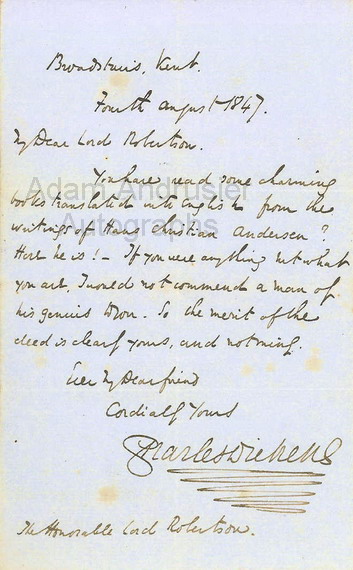 Broadstairs, Kent.
Fourth August 1847.
My Dear Lord Robertson.
You have read some charming
books translated into english from the
writings of Hans Christian Andersen?
Here he is! - If you were anything but what
you are, I would not commend a man of
his genius to you. So the merit of the
deed is clearly yours, and not mine.
Ever My Dear friend
Cordially Yours
Charles Dickens
The Honorable Lord Robertson.
Adam Andrusier
Autographs